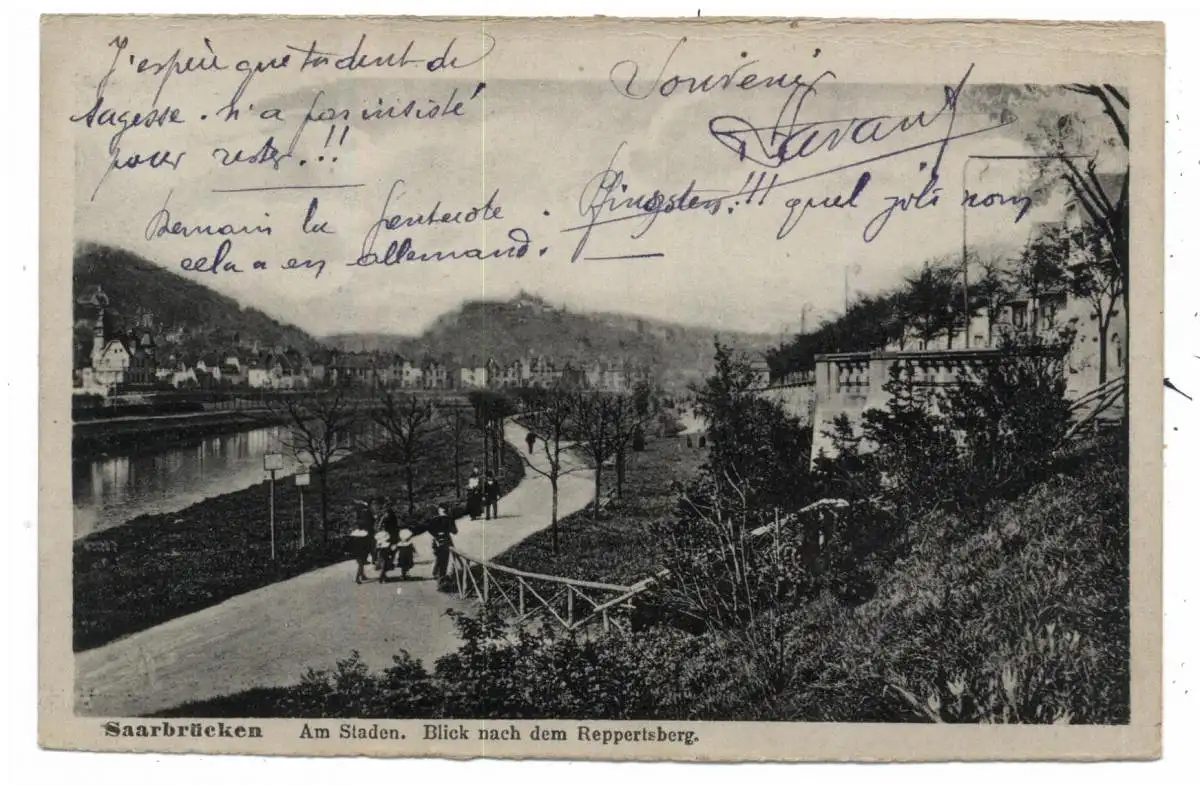 J'espère que ta dent de
sagesse. n'a pas insisté
pour rester.!!
Souvenir
Demain la pentecote. Pfingsten!!! quel joli nom
cela a en allemand.
Saarbrücken Am Staden. Blick nach dem Reppertsberg.